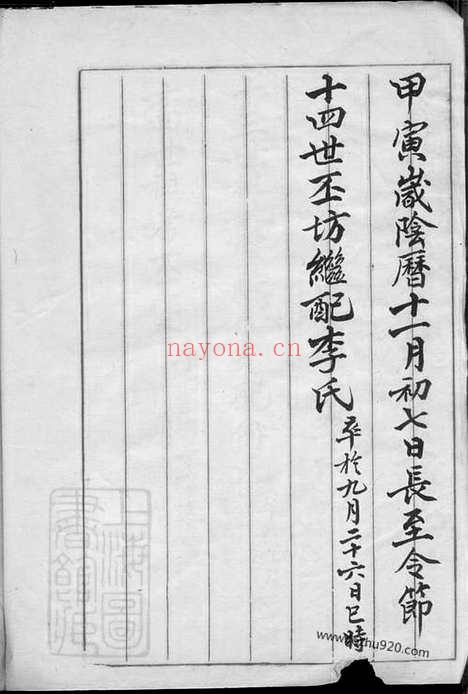 甲寅歲陰曆十一月初七日長至令節
十四世丕坊繼配李氏卒於九月二十六日巳時
上海圖書館藏
nayona.cn
hu920.com